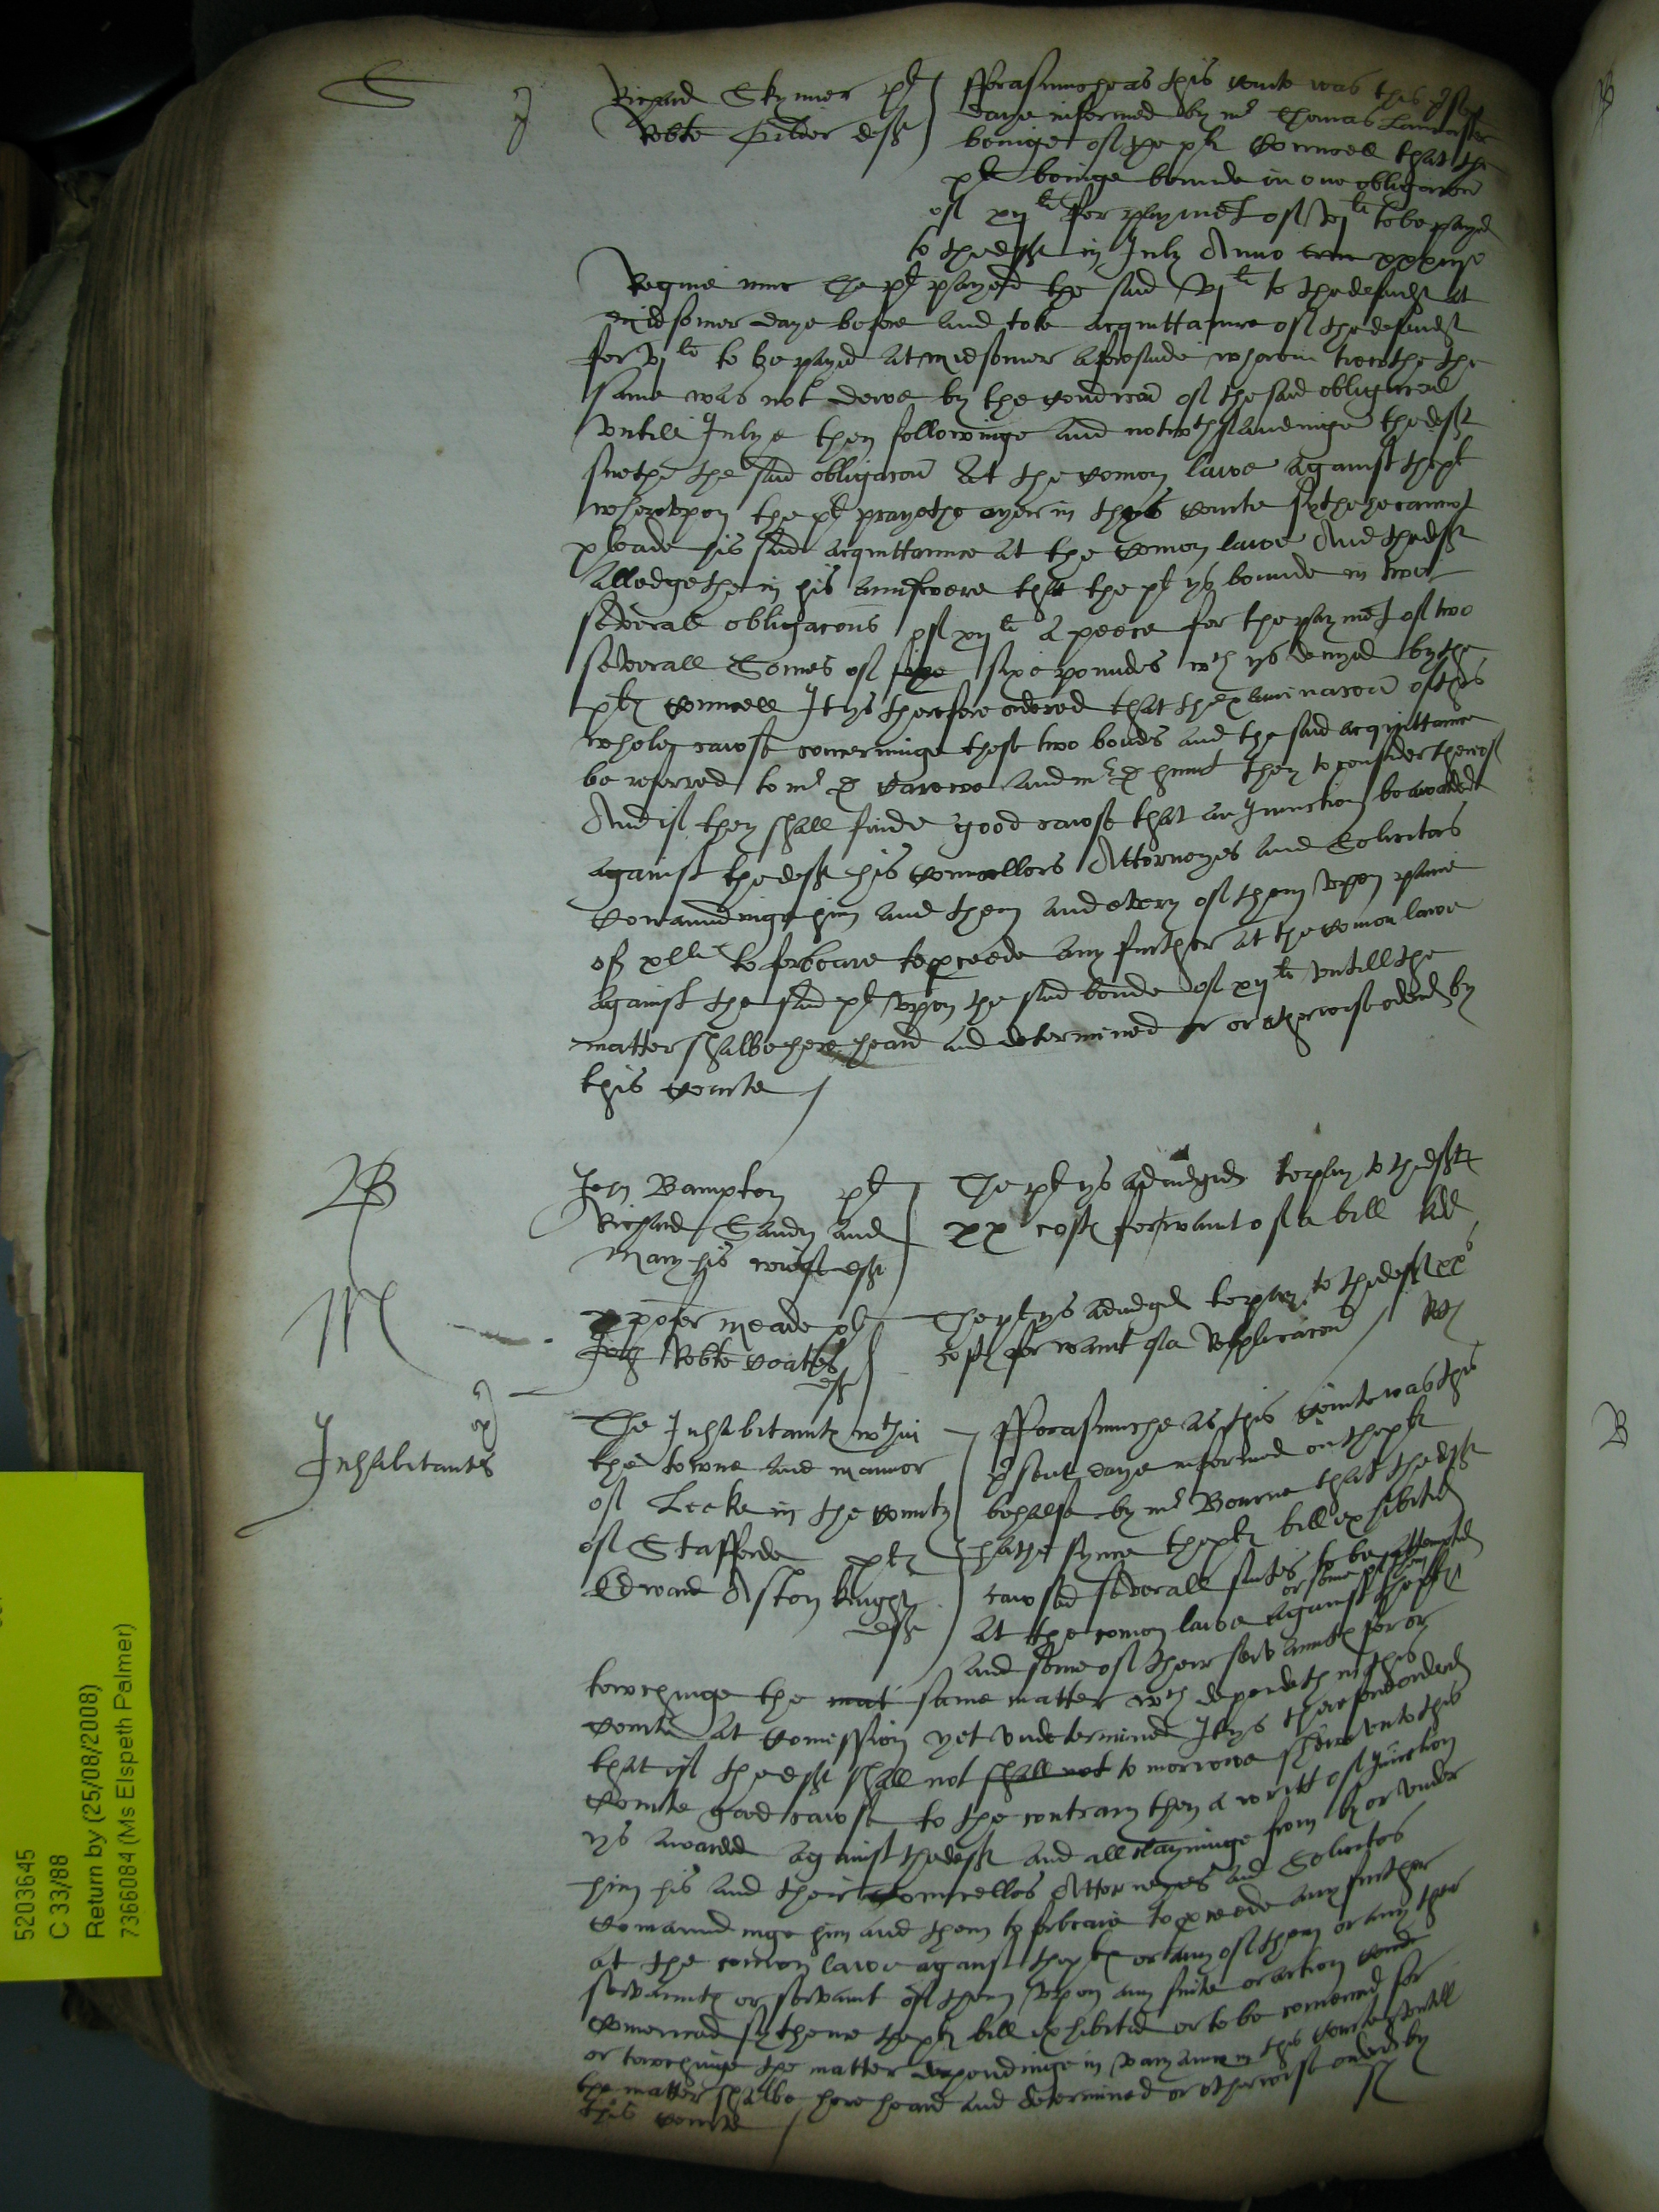 S
Richard Skynner pl
Robte Pilder deft
fforasmuche as this Courte was this psent
daye informed by mr Thomas Lancaster
beinge of the pl Councell that the
pl beinge bounde in one obligacon
of xij li for payment of vj li to be payd
to the deft in July Anno xxxiiijo
Regine nunc The pl payed the said vj li to the defendt at
midsomer daye before and toke acquittaunce of the defendt
for vj li to be payd at midsomer aforesaide wherein trewthe the
same was not dewe by the condicon of the said obligacon
vntill Julye then followinge and notwthstandinge the deft
suethe the said obligacon at the comon lawe against the pl
wherevpon the pl prayethe ayde in thys Courte sythe he cannot
pleade his said acquittaunce at the comon lawe And the deft
alledgethe in his aunswere that the pl ys bounde in two
severall obligacons of xij li a peece for the payment of two
severall Somes of sixe poundes wch ys denyed by the
plt Councell It ys therefore ordered that the examinacon of this
whole cawse concerninge these two bondes and the said acquittance
be referred to mr D Carewe and mr D hunt they to consider thereof
And if they shall finde good cawse that an Iniunction be awarded
against the deft his Councellors Attorneyes and Solicitors
Comaundinge him and them and every of them vpon paine
of xl li to forbeare to pceede any further at the comon lawe
against the said pl vpon the said bonde of xij li vntill the
matter shalbe here heard and determined or otherwise ordered by
this Courte /
B
John Bampton pl
Richard Sandy and
Mary his wief deft
The pl ys adiudged to pay to the deftes
xx costes for want of a bill
M
xpofer Meade pl
John Robte Coates
deft
The pl ys adiudged to pay to the deft xxs
costes for want of a Replicacon /
Inhabitantes
The Inhabitantes wthin
the towne and mannor
of Leeke in the County
of Stafforde pltes
Edward Aston knight
deft
fforasmuche as this Courte was this
psent daye informed on the pltes
behalfe by mr Bourne that the deft
hathe synce the pltes bill exhibited
cawsed severall suites to be attempted
at the comon lawe against the pltes
or some of them
and some of their servauntes for or
towchinge the mat same matter wch dependeth in this
Courte at Comission yet vndetermined It ys therefore ordered
that if the deft shall not shall not to morrowe shewe vnto this
Courte good cawse to the contrary then a writt of Iniunction
ys awarded against the deft and all clayminge from by or vnder
him his and their Councellors Attorneyes and Solicitors
Comaundinge him and them to forbeare to pceede any further
at the comon lawe against the pltes or any of them or any ther
servauntes or servaunt of them vpon any suite or action
Comenced sythence the pltes bill exhibited or to be comenced for
or towchinge the matter dependinge in variaunce in this Courte vntill
the matter shalbe here heard and determined or otherwise ordered by
this Courte /
B
5203645
C 33/88
Return by (25/08/2008)
7366084 (Ms Elspeth Palmer)